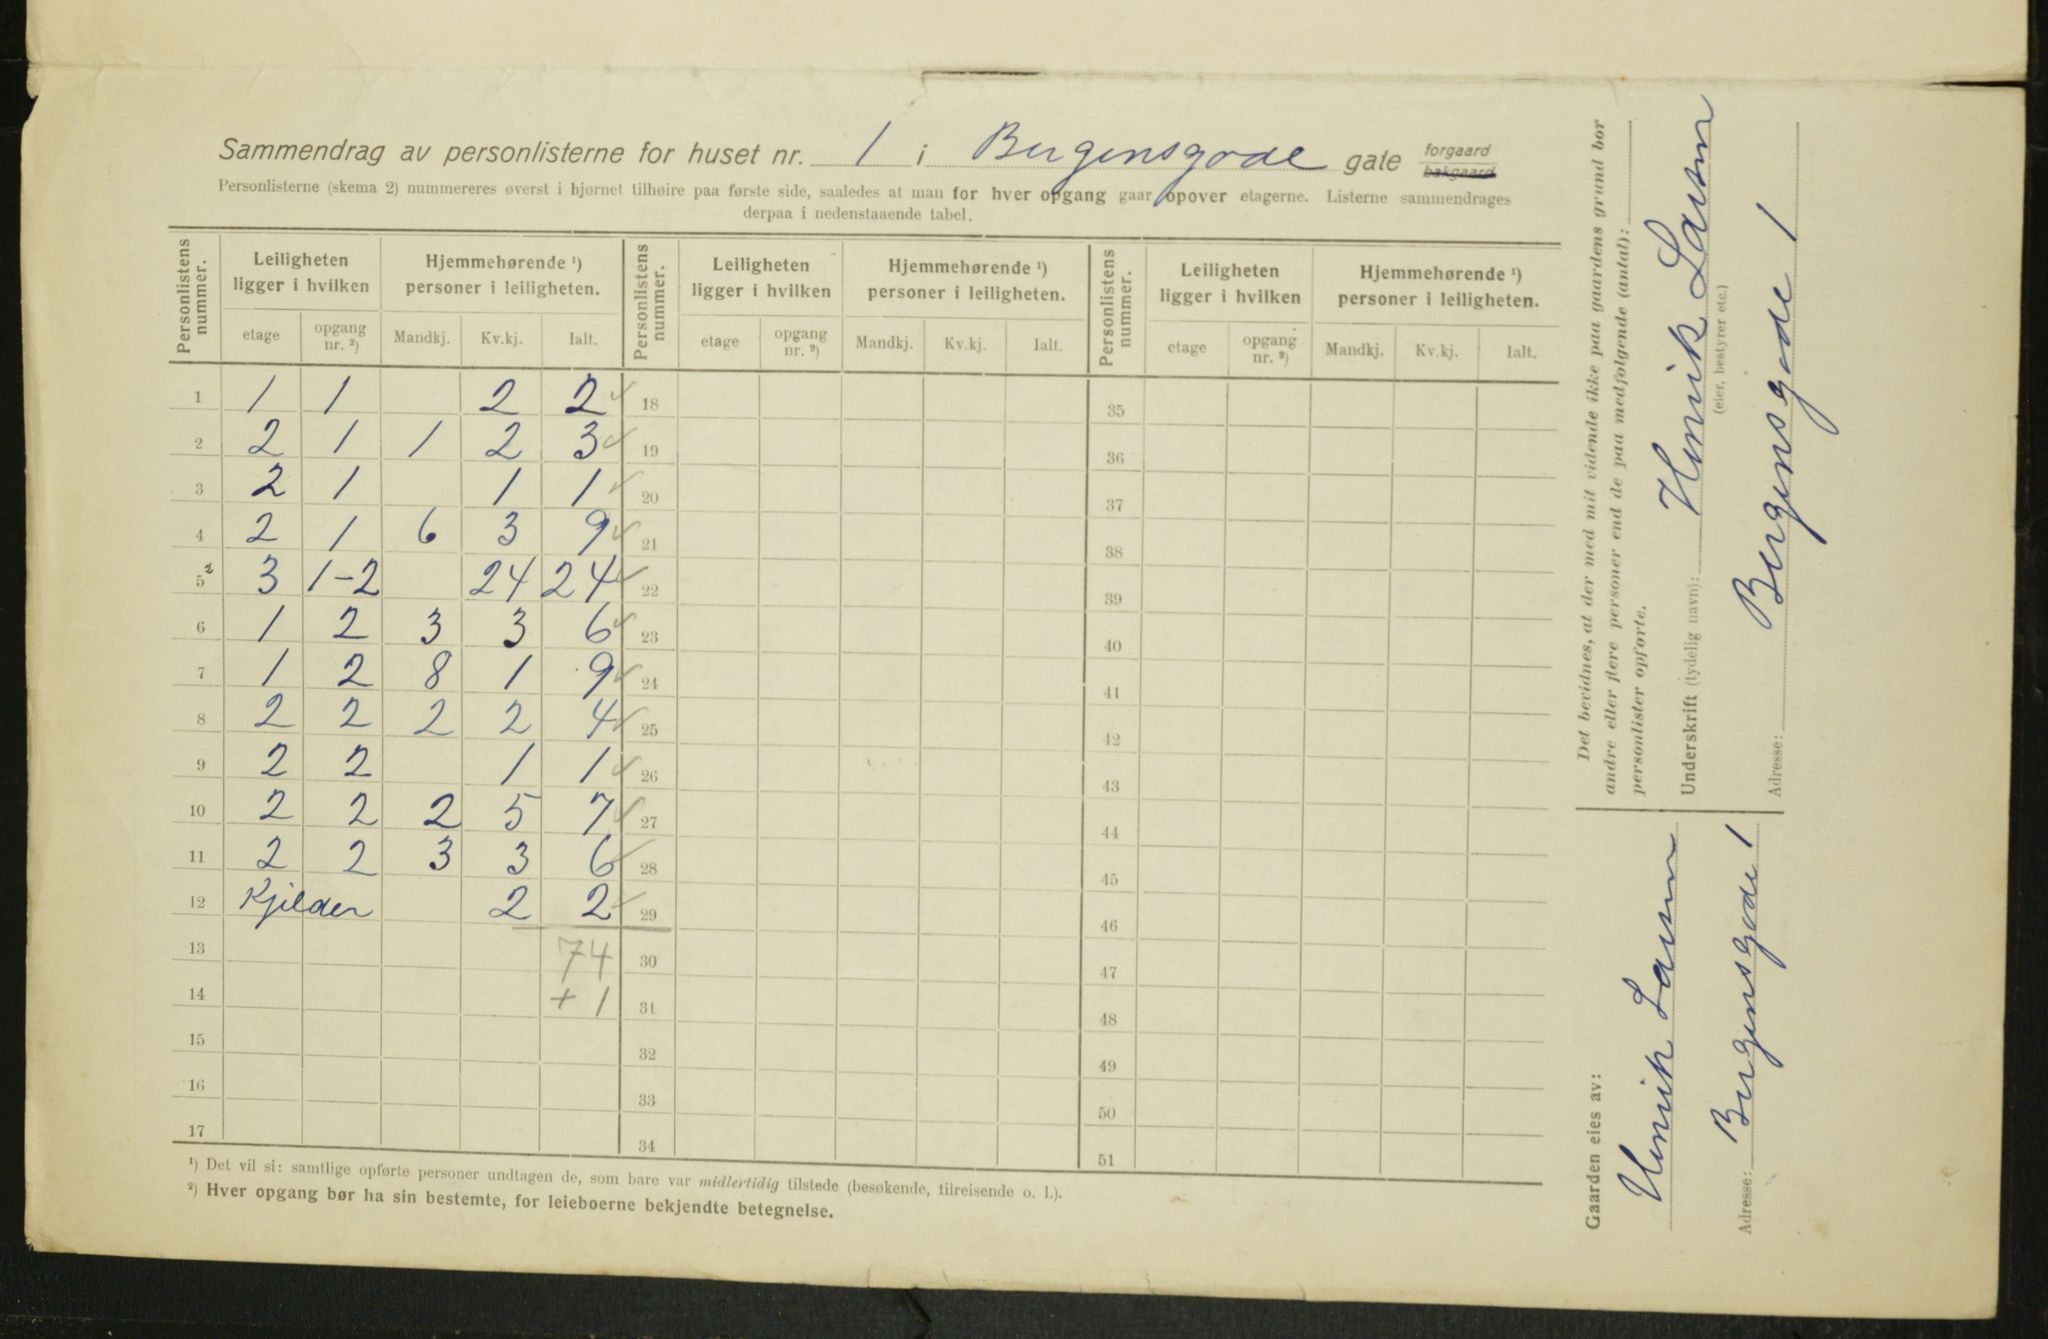 Sammendrag av personlisterne for huset nr. 1 i Bergensgade gate forgaard bakgaard
Personlisterne (skema 2) nummereres øverst i hjørnet tilhøire paa første side, saaledes at man for hver opgang gaar opover etagerne. Listerne sammendrages
derpaa i nedenstaaende tabel.
Personlistens nummer. Leiligheten ligger i hvilken Hjemmehørende ¹) personer i leiligheten. Personlistens nummer. Leiligheten ligger i hvilken Hjemmehørende ¹) personer i leiligheten. Personlistens nummer. Leiligheten ligger i hvilken Hjemmehørende ¹) personer i leiligheten.
etage opgang nr. ²) Mandkj. Kv.kj. Ialt. etage opgang nr. ²) Mandkj. Kv.kj. Ialt. etage opgang nr. ²) Mandkj. Kv.kj. Ialt.
1 1 1 2 2 ✓ 18 35
2 2 1 1 2 3 ✓ 19 36
3 2 1 1 1 ✓ 20 37
4 2 1 6 3 9 ✓ 21 38
5 2 3 1-2 24 24 ✓ 22 39
6 1 2 3 3 6 ✓ 23 40
7 1 2 8 1 9 ✓ 24 41
8 2 2 2 2 4 ✓ 25 42
9 2 2 1 1 ✓ 26 43
10 2 2 2 5 7 ✓ 27 44
11 2 2 3 3 6 ✓ 28 45
12 Kjelder 2 2 ✓ 29 46
13 74 30 47
14 + 1 31 48
15 32 49
16 33 50
17 34 51
¹) Det vil si: samtlige opførte personer undtagen de, som bare var midlertidig tilstede (besøkende, tilreisende o. l.).
²) Hver opgang bør ha sin bestemte, for leieboerne bekjendte betegnelse.
Det bevidnes, at der med mit vidende ikke paa gaardens grund bor
andre eller flere personer end de paa medfølgende (antal):
personlister opførte.
Underskrift (tydelig navn): Henrik
(eier, bestyrer etc.)
Adresse: Bergensgade 1
Gaarden eies av:
Henrik
Adresse: Bergensgade 1